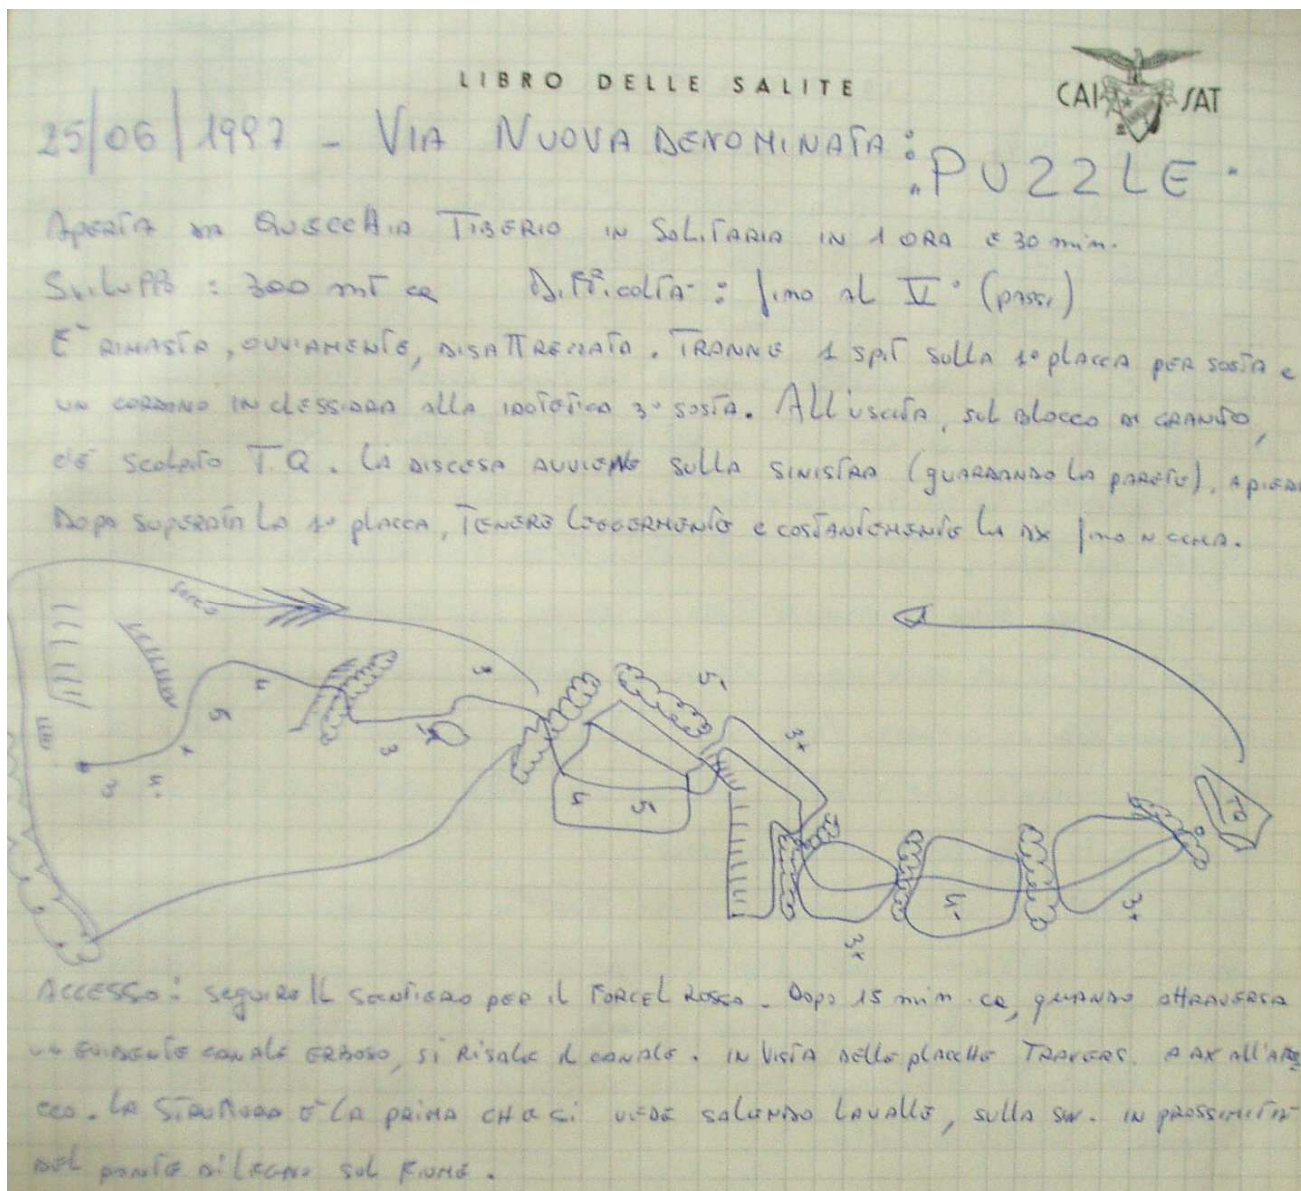 LIBRO DELLE SALITE
CAI SAT
25/06/1997 - VIA NUOVA DENOMINATA:
"PUZZLE"
APERTA DA QUECCHIA TIBERIO IN SOLITARIA IN 1 ORA E 30 min.
SVILUPPO: 300 mT ca DIFFICOLTA': fino AL V° (passi)
E' RIMASTA, OVVIAMENTE, DISATTREZZATA. TRANNE 1 SPIT SULLA 1° PLACCA PER SOSTA E
UN CORDONO IN CLESSIDRA ALLA IPOTETICA 3° SOSTA. ALL'USCITA, SUL BLOCCO DI GRANITO,
C'È SCOLPITO T.Q. LA DISCESA AVVIENE SULLA SINISTRA (GUARDANDO LA PARETE), A PIEDI
DOPO SUPERATA LA 1° PLACCA, TENERE LEGGERMENTE E COSTANTEMENTE LA DX fino
3+
TQ
4
5
4
3
3
3
5-
5-
3+
3+
5-
3+
ACCESSO: SEGUIRE IL SENTIERO PER IL FORCEL ROSSO. DOPO 15 min ca, QUANDO ATTRAVERSA
UN EVIDENTE CANALE ERBOSO, SI RISALE IL CANALE. IN VISTA DELLE PLACCHE TRAVERS. A DX ALL'ATTAC
CO. LA STRUTTURA E' LA PRIMA CHE SI VEDE SALENDO LA VALLE, SULLA SIN. IN PROSSIMITA'
DEL PONTE DI LEGNO SUL FIUME.